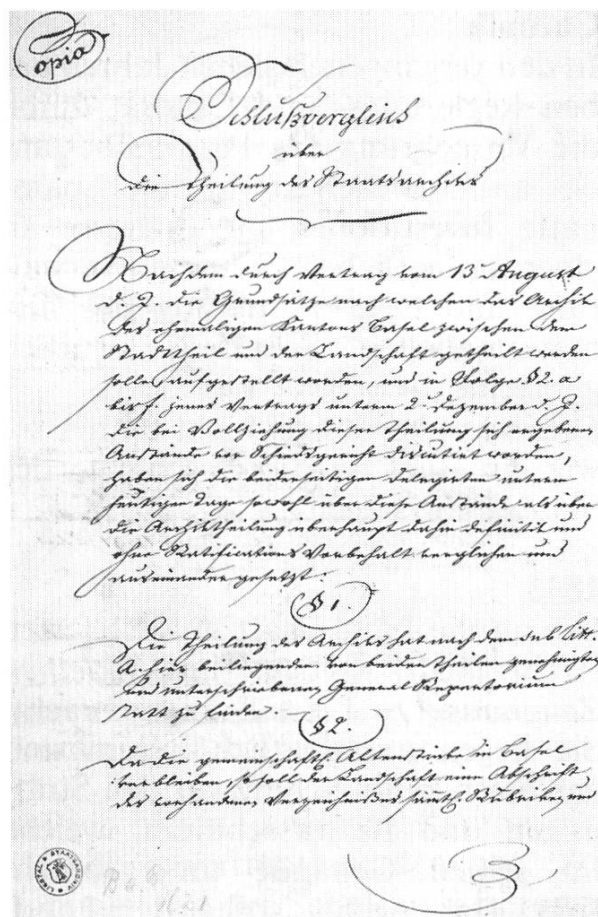 Copia
Schlußvergleich
über
die Theilung des Staatsarchives
Nachdem durch Vertrag vom 13n August
d. J. die Grundsätze nach welchen das Archiv
des ehemaligen Kantons Basel zwischen dem
Stadttheil und der Landschaft getheilt werden
solle, aufgestellt worden, und in Folge § 2. a
bis f. jenes Vertrags unterm 2n Dezember d. J.
die bei Vollziehung dieser Theilung sich ergebenen
Anstände vor Schiedsgericht diskutiert worden,
haben sich die beiderseitigen Delegirten unterm
heutigen Tage sowohl über diese Anstände als über
die Archivtheilung überhaupt dahin definitiv und
ohne Ratifications Vorbehalt verglichen und
auseinander gesetzt:
§ 1.
Die Theilung des Archivs hat nach dem sub Litt.
A. hier beiliegenden von beiden Theilen genehmigten
und unterschriebenen General Repertorium
statt zu finden.
§ 2.
Da die gemeinschaftl. Aktenstücke in Basel
verbleiben, so soll der Landschaft eine Abschrift
des vorhandenen Verzeichnißes sämtl. Rubriken und
STAATSARCHIV LIESTAL